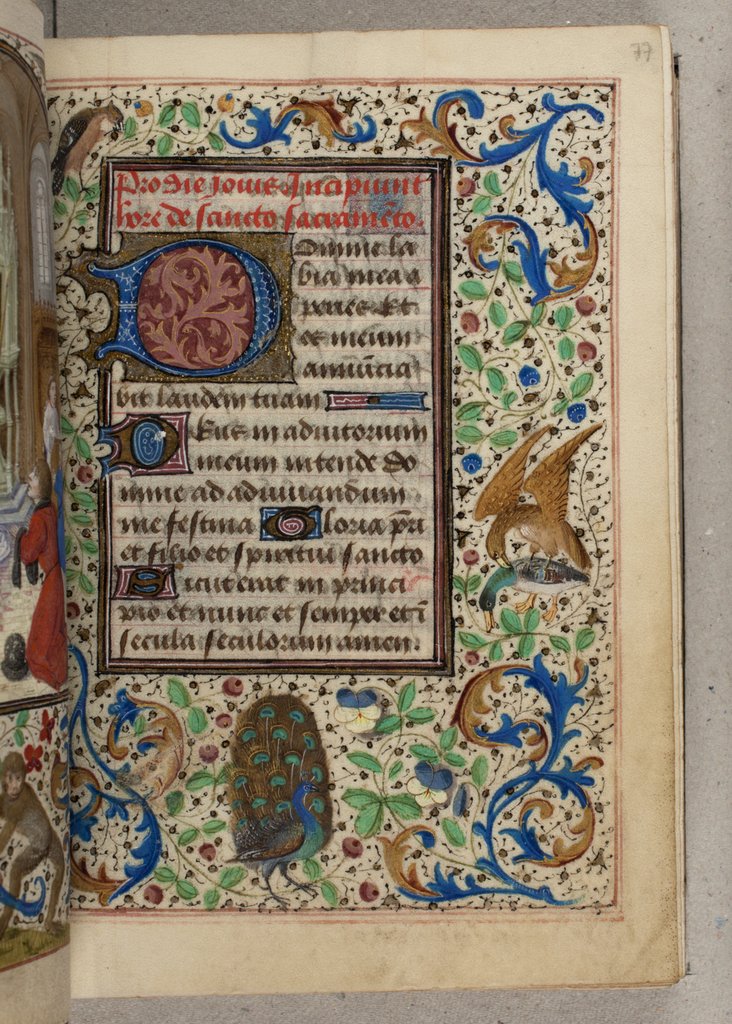 77
Pro die iouis Incipiunt
hore de sancto sacrameto.
Domine la
bia mea a
peries Et
os meum
annūcia
bit laudem tuam
Deus in adiutorium
meum intende Do
mine ad adiuuandum
me festina Gloria pr̄i
et filio et spiritui sancto
Sicut erat in princi
pio et nunc et semper et ī
secula seculorum amen.